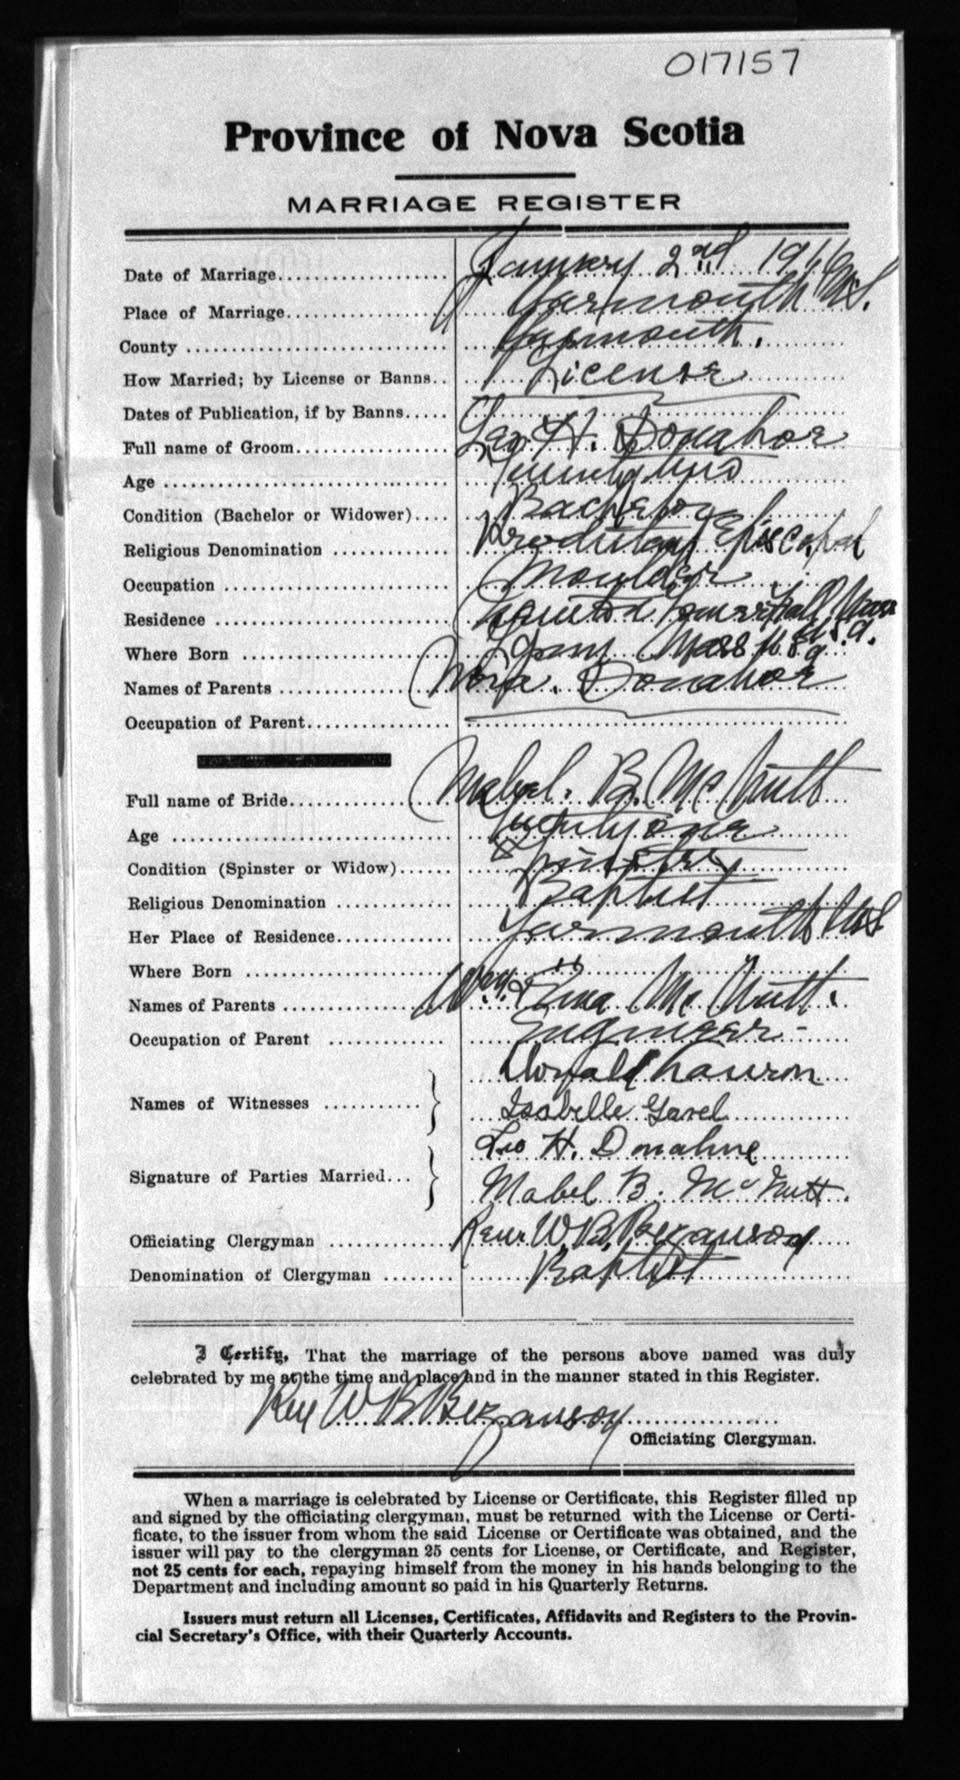 017157
Province of Nova Scotia
MARRIAGE REGISTER
Date of Marriage January 2nd 1916
Place of Marriage Yarmouth N.S.
County Yarmouth.
How Married; by License or Banns License
Dates of Publication, if by Banns
Full name of Groom Leo H. Donahoe
Age Twenty two
Condition (Bachelor or Widower) Bachelor
Religious Denomination Episcopal
Occupation Moulder
Residence Mass U.S.A.
Where Born Lynn Mass U.S.A
Names of Parents Donahoe
Occupation of Parent
Full name of Bride Mabel. B. McNutt
Age Twenty one
Condition (Spinster or Widow) Spinster
Religious Denomination Baptist
Her Place of Residence Yarmouth N.S
Where Born "
Names of Parents Wm. & McNutt.
Occupation of Parent Engineer -
Names of Witnesses Donald Lawson
Isabelle Gavel
Signature of Parties Married Leo H. Donahue
Mabel B. McNutt.
Officiating Clergyman W. B. Bezanson
Denomination of Clergyman Baptist
I Certify, That the marriage of the persons above named was duly
celebrated by me at the time and place and in the manner stated in this Register.
Rev W B Bezanson
Officiating Clergyman.
When a marriage is celebrated by License or Certificate, this Register filled up
and signed by the officiating clergyman, must be returned with the License or Certi-
ficate, to the issuer from whom the said License or Certificate was obtained, and the
issuer will pay to the clergyman 25 cents for License, or Certificate, and Register,
not 25 cents for each, repaying himself from the money in his hands belonging to the
Department and including amount so paid in his Quarterly Returns.
Issuers must return all Licenses, Certificates, Affidavits and Registers to the Provin-
cial Secretary's Office, with their Quarterly Accounts.